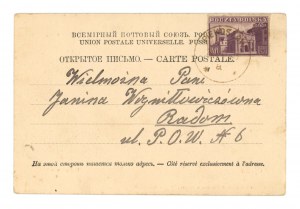 ВСЕМІРНЫЙ ПОЧТОВЫЙ СОЮЗЪ.
UNION POSTALE UNIVERSELLE.
POCZTA POLSKA
ОТКРЫТОЕ ПИСЬМО. — CARTE POSTALE.
Wielmożna Pani
Janina
Radom
ul. P.O.W. № 6
На этой сторонѣ пишется только адресъ. — Côté réservé exclusivement à l'adresse.